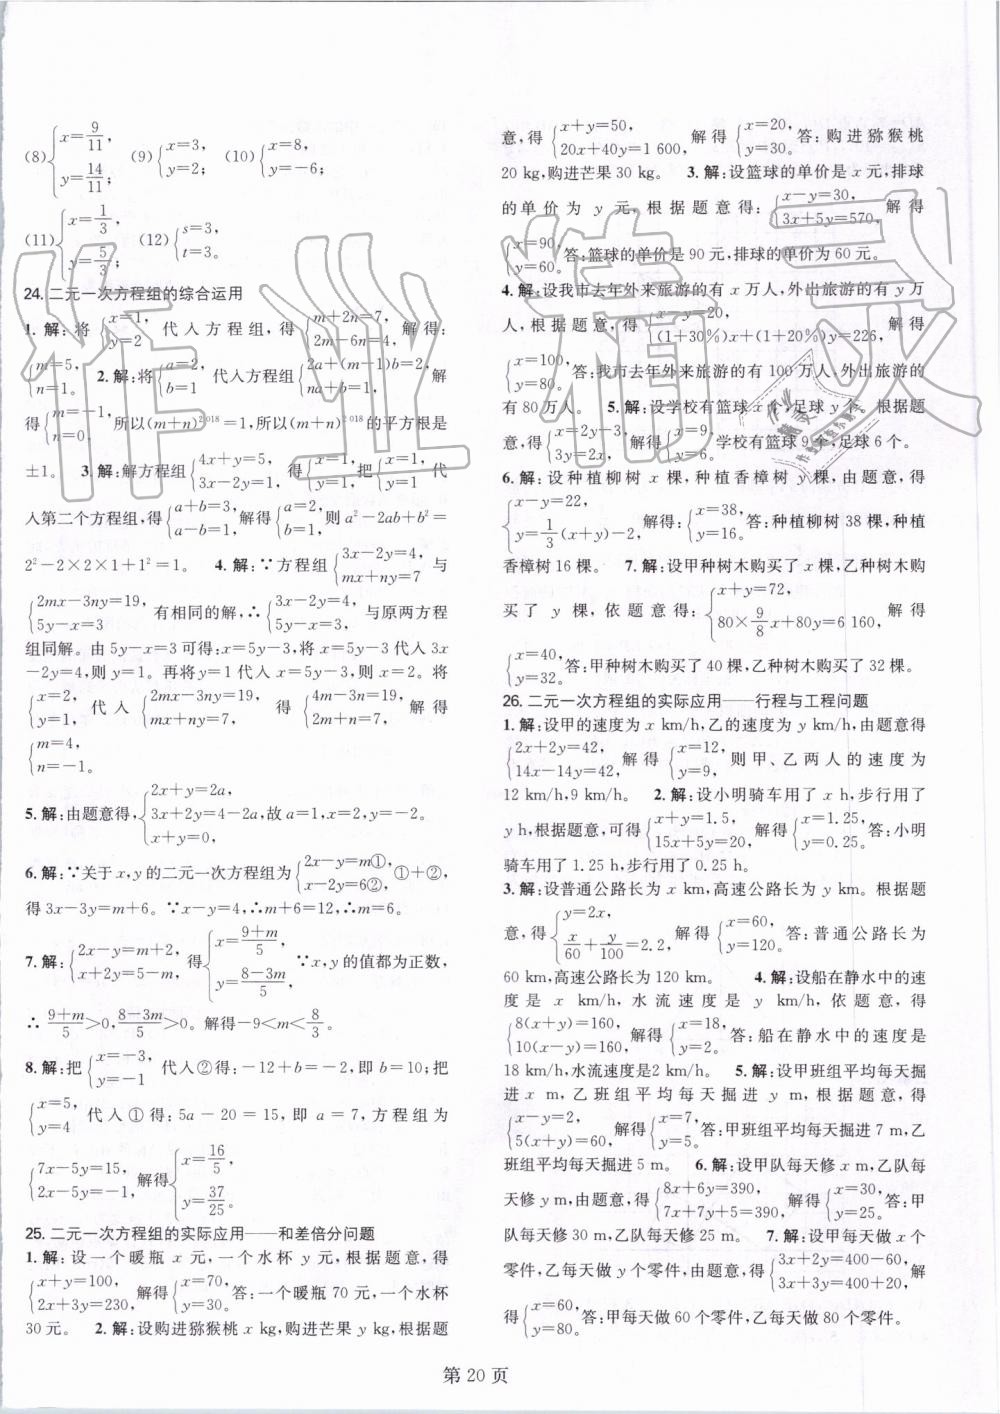 (8){x=9/11, y=14/11; (9){x=3, y=2; (10){x=8, y=-6;
(11){x=1/3, y=5/3; (12){s=3, t=3.
24. 二元一次方程组的综合运用
1. 解:将{x=1, y=2 代入方程组,得{m+2n=7, 2m-6n=4, 解得:
{m=5, n=1. 2. 解:将{a=2, b=1 代入方程组{2a+(m-1)b=2, na+b=1, 解
得{m=-1, n=0. 所以(m+n)²⁰¹⁸=1,所以(m+n)²⁰¹⁸的平方根是
±1. 3. 解:解方程组{4x+y=5, 3x-2y=1, 得{x=1, y=1, 把{x=1, y=1 代
入第二个方程组,得{a+b=3, a-b=1, 解得{a=2, b=1, 则 a²-2ab+b²=
2²-2×2×1+1²=1. 4. 解:∵方程组{3x-2y=4, mx+ny=7 与
{2mx-3ny=19, 5y-x=3 有相同的解,∴{3x-2y=4, 5y-x=3, 与原两方程
组同解。由 5y-x=3 可得:x=5y-3,将 x=5y-3 代入 3x
-2y=4,则 y=1。再将y=1代入 x=5y-3,则 x=2。将
{x=2, y=1 代入{2mx-3ny=19, mx+ny=7 得{4m-3n=19, 2m+n=7, 解得
{m=4, n=-1.
5. 解:由题意得,{2x+y=2a, 3x+2y=4-2a, x+y=0, 故 a=1,x=2,y=-2.
6. 解:∵关于x,y的二元一次方程组{2x-y=m①, x-2y=6②, ①+②,
得 3x-3y=m+6。∵x-y=4,∴m+6=12,∴m=6.
7. 解:{2x-y=m+2, x+2y=5-m, 得{x=(9+m)/5, y=(8-3m)/5. ∵x,y的值都为正数,
∴ (9+m)/5>0,(8-3m)/5>0。解得-9<m<8/3.
8. 解:把{x=-3, y=-1 代入②得:-12+b=-2,即 b=10;把
{x=5, y=4 代入①得:5a-20=15,即 a=7,方程组为
{7x-5y=15, 2x-5y=-1, 解得{x=16/5, y=37/25.
25. 二元一次方程组的实际应用——和差倍分问题
1. 解:设一个暖瓶 x 元,一个水杯 y 元,根据题意,得
{x+y=100, 2x+3y=230, 解得{x=70, y=30. 答:一个暖瓶 70 元,一个水杯
30 元。 2. 解:设购进猕猴桃 x kg,购进芒果 y kg,根据题
意,得{x+y=50, 20x+40y=1 600, 解得{x=20, y=30. 答:购进猕猴桃
20 kg,购进芒果 30 kg。 3. 解:设篮球的单价是 x 元,排球
的单价为 y 元,根据题意得:{x-y=30, 3x+5y=570, 解得
{x=90, y=60. 答:篮球的单价是 90 元,排球的单价为 60 元。
4. 解:设我市去年外来旅游的 x 万人,外出旅游的有 y 万
人,根据题意,得{x-y=20, (1+30%)x+(1+20%)y=226, 解得
{x=100, y=80. 答:我市去年外来旅游的有 100 万人,外出旅游的
有 80 万人。 5. 解:设学校有篮球 x 个,足球 y 个。根据题
意,得{x=2y-3, 3y=2x, 解得{x=9, y=6. 学校有篮球 9 个,足球 6 个。
6. 解:设种植柳树 x 棵,种植香樟树 y 棵,由题意,得
{x-y=22, y=1/3(x+y)-2, 解得:{x=38, y=16. 答:种植柳树 38 棵,种植
香樟树 16 棵。 7. 解:设甲种树木购买了 x 棵,乙种树木购
买了 y 棵,依题意得:{x+y=72, 80×9/8x+80y=6 160, 解得
{x=40, y=32. 答:甲种树木购买了 40 棵,乙种树木购买了 32 棵。
26. 二元一次方程组的实际应用——行程与工程问题
1. 解:设甲的速度为 x km/h,乙的速度为 y km/h,由题意得
{2x+2y=42, 14x-14y=42, 解得{x=12, y=9. 则甲、乙两人的速度为
12 km/h,9 km/h。 2. 解:设小明骑车用了 x h,步行用了
y h,根据题意,可得{x+y=1.5, 15x+5y=20, 解得{x=1.25, y=0.25. 答:小明
骑车用了 1.25 h,步行用了 0.25 h.
3. 解:设普通公路长为 x km,高速公路长为 y km。根据题
意,得{y=2x, x/60+y/100=2.2, 解得{x=60, y=120. 答:普通公路长为
60 km,高速公路长为 120 km。 4. 解:设船在静水中的速
度是 x km/h,水流速度是 y km/h,依题意,得
{8(x+y)=160, 10(x-y)=160, 解得{x=18, y=2. 答:船在静水中的速度是
18 km/h,水流速度是2 km/h。 5. 解:设甲班组平均每天掘
进 x m,乙班组平均每天掘进 y m,根据题意,得
{x-y=2, 5(x+y)=60, 解得{x=7, y=5. 答:甲班组平均每天掘进 7 m,乙
班组平均每天掘进 5 m。 6. 解:设甲队每天修 x m,乙队每
天修 y m,由题意,得{8x+6y=390, 6x+7y=390, 解得{x=30, y=25. 答:甲
队每天修 30 m,乙队每天修 25 m。 7. 解:设甲每天做 x 个
零件,乙每天做 y 个零件,由题意,得{3x+2y=400-60, 3x+3y=400+20, 解
得{x=60, y=80. 答:甲每天做 60 个零件,乙每天做 80 个零件。
第 20 页
作业精灵